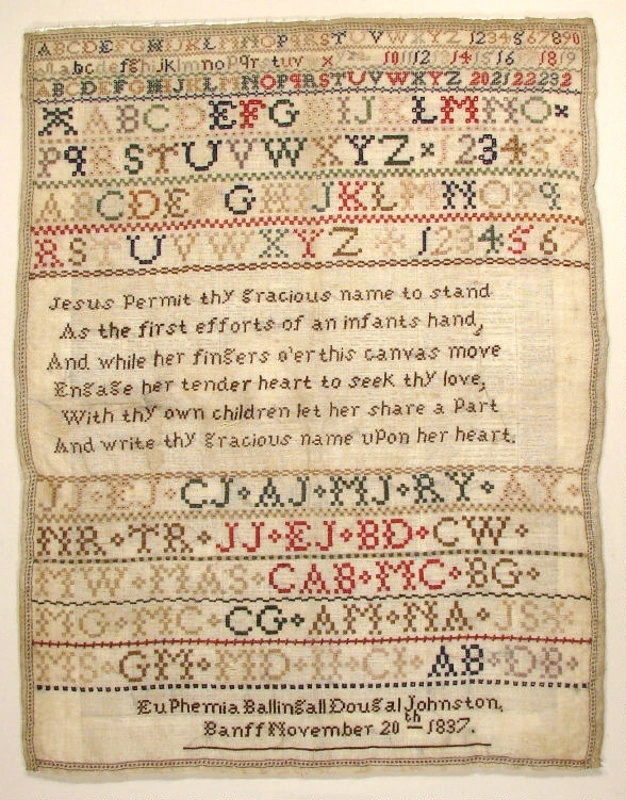 ABCDEFGHIJKLMNOPQRSTUVWXYZ 1234567890
abcdefghijklmnopqrstuv x 10 11 12 14 15 16 18 19
ABCDEFGHIJKLMNOPQRSTUVWXYZ 20 21 22 23 2
ABCDEFG IJKLMNO
PQRSTUVWXYZ 123456
ABCDEFGHIJKLMNOPQ
RSTUVWXYZ 1234567
Jesus Permit thy gracious name to stand
As the first efforts of an infants hand,
And while her fingers o'er this canvas move
Engage her tender heart to seek thy love,
With thy own children let her share a Part
And write thy gracious name upon her heart.
JJ EJ CJ AJ MJ RY AY
NR TR JJ EJ BD CW
MW MAS CAB MC BG
MG MC CG AM NA JS
MS GM MD CJ AB DB
Euphemia Ballingall Dougal Johnston,
Banff November 20th 1837.